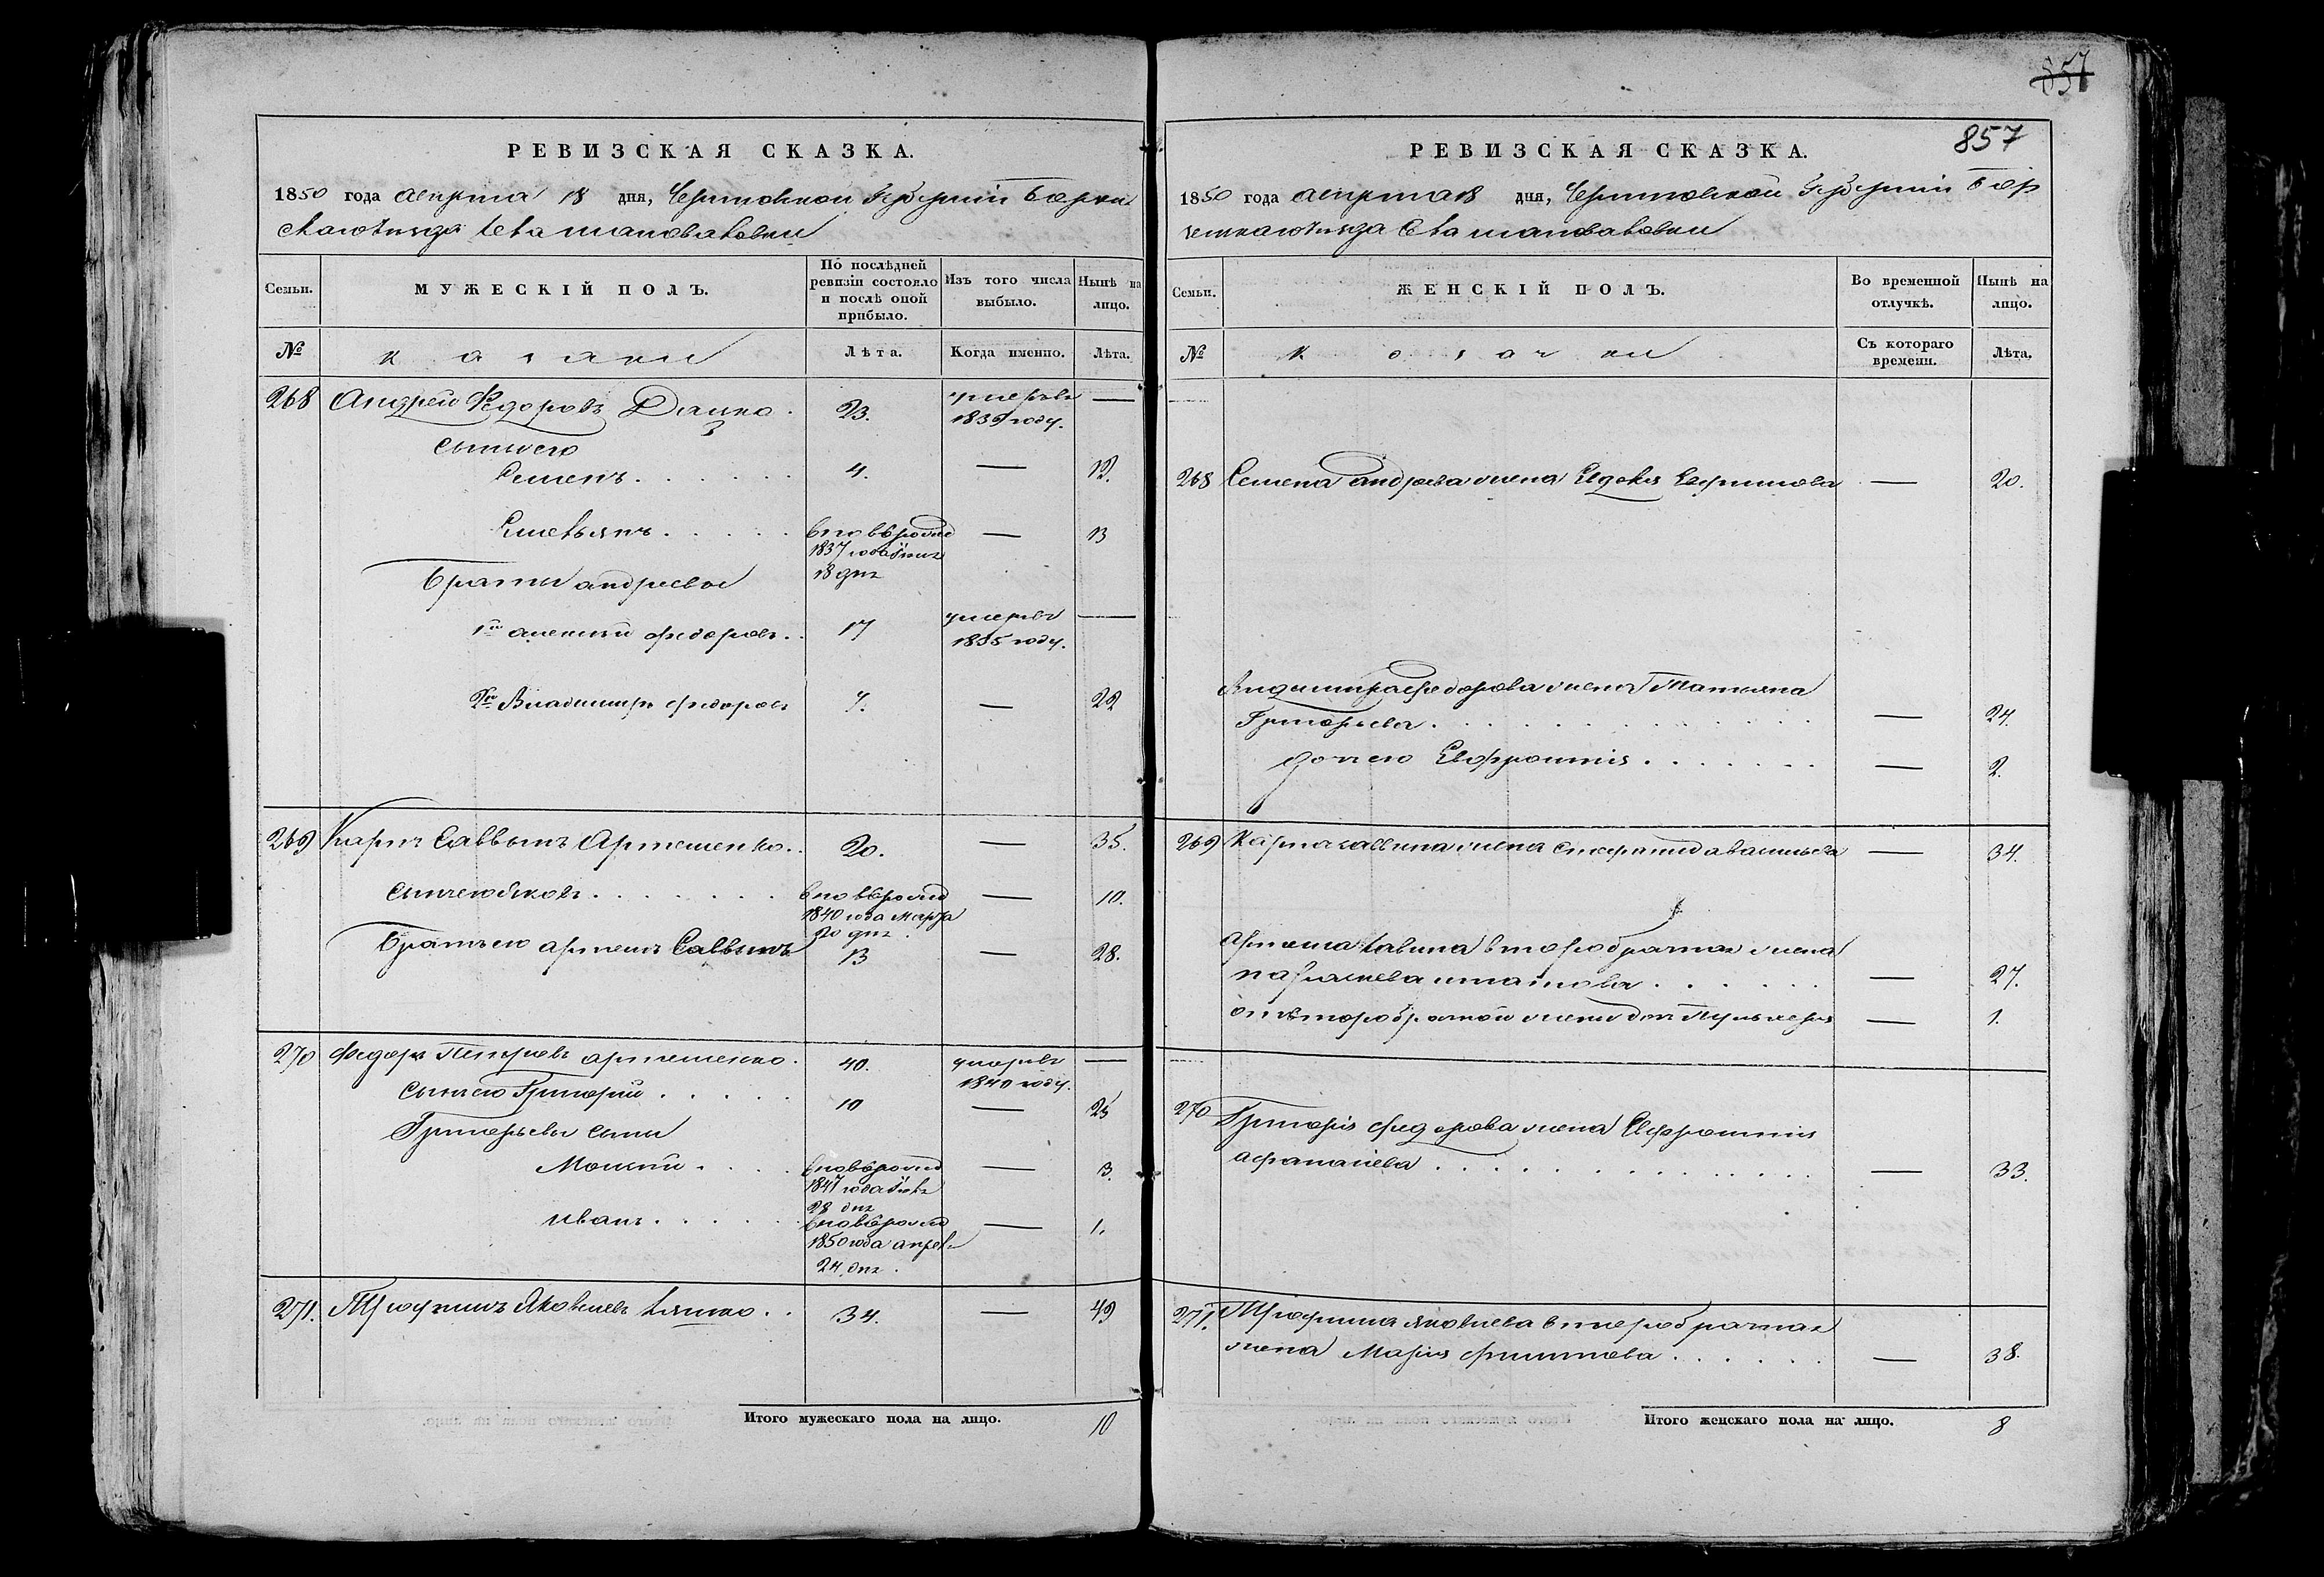 РЕВИЗСКАЯ СКАЗКА.
1850 года августа 18 дня, Черниговской губерніи Борзен
скаго уѣзда села
Семьи.
МУЖЕСКІЙ ПОЛЪ.
По послѣдней ревизіи состояло и послѣ оной прибыло.
Изъ того числа выбыло.
Нынѣ на лицо.
№
казаки
Лѣта.
Когда именно.
Лѣта.
268 Андрей Федоровъ Дашко. 23. умеръ —
1839 году.
сыны его
Семенъ. 4. — 19.
Емельянъ. вновь рожд — 13
1837 года
18 дня
Братья андреевы
1й алексѣй федоровъ. 17 умеръ —
1835 году.
2й Владимиръ федоровъ 7. — 22
269 Карпъ Саввинъ Артеменко. 20. — 35.
сынъ его Яковъ. вновь рожд — 10.
1840 года марта
20 дня.
Братъ его артемъ Саввинъ 13 — 28.
270 Федоръ Петровъ артеменко. 40. умеръ —
1840 году.
сынъ его Григорій. 10 — 25
Григорьевы сыны
Моисѣй. вновь рожд — 3.
1847 года
28 дня
Иванъ. вновь рожд — 1.
1850 года апрѣля
24 дня.
271. Трофимъ Яковлевъ Ляшко. 34. — 49
Итого мужескаго пола на лицо. 10
857
857
РЕВИЗСКАЯ СКАЗКА.
1850 года августа 18 дня, Черниговской губерніи Бор
зенскаго уѣзда села
Семьи.
ЖЕНСКІЙ ПОЛЪ.
Во временной отлучкѣ.
Нынѣ на лицо.
№
козачки
Съ котораго времени.
Лѣта.
268 Семена андреева жена Евдокія Ефимова — 20.
Владимира федорова жена Татьяна
Григорьева. — 24.
дочь его Евфросинія. — 2.
269 Карпа саввина жена васильева — 34.
Артема савина второбрачная жена
игнатова. — 27.
отъ второбрачной жены дочь Пульхерія — 1.
270 Григорія федорова жена Евфросинія
афанасіева. — 33.
271. Трофима яковлева второбрачная
жена Марія филипова. — 38.
Итого женскаго пола на лицо. 8